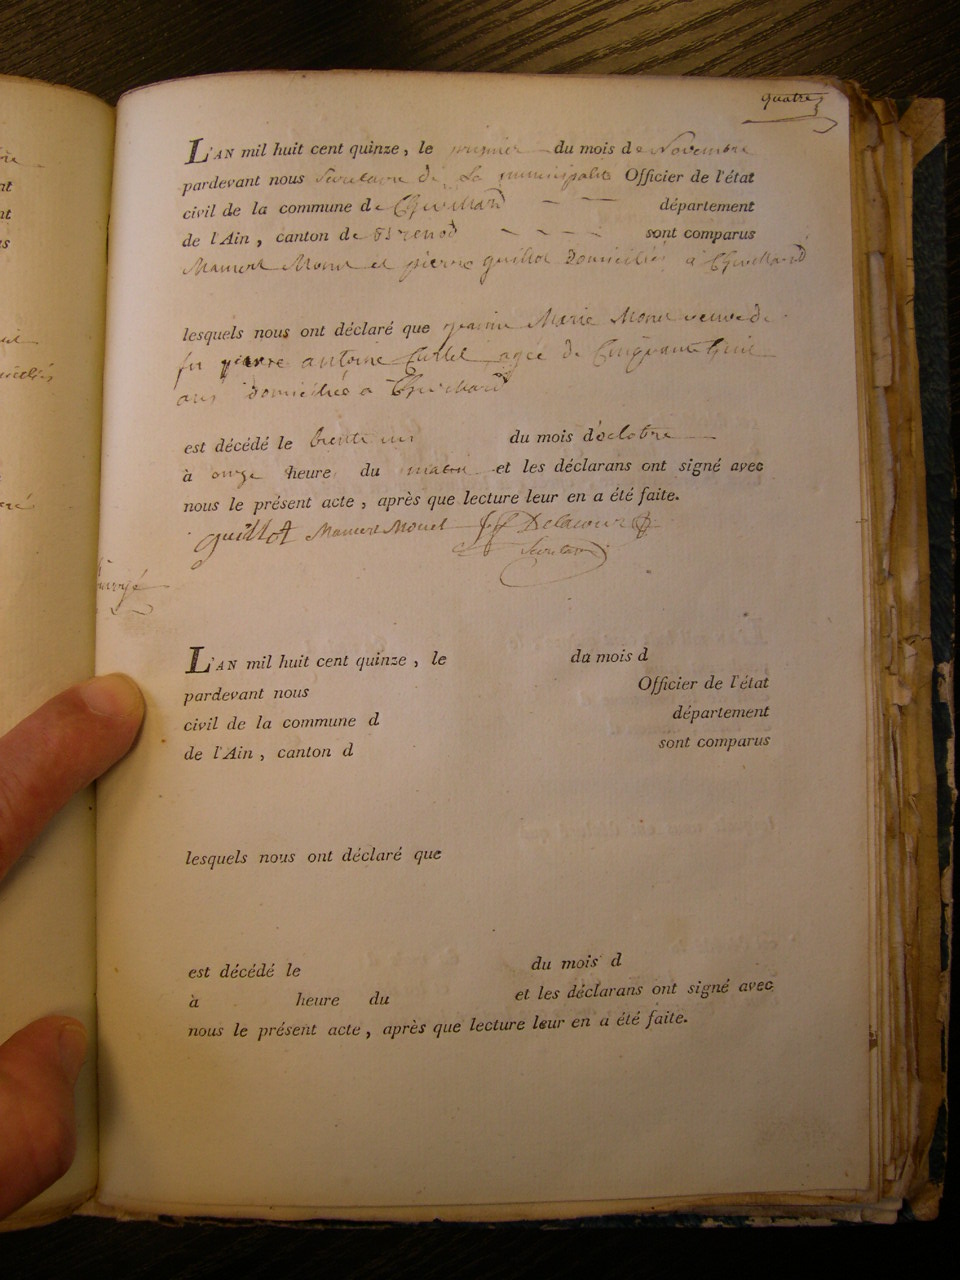 quatre
L'AN mil huit cent quinze, le premier du mois de Novembre
pardevant nous Secretaire de La municipalité Officier de l'état
civil de la commune de Chevillard département
de l'Ain, canton de Brenod sont comparus
Mamert Monet et pierre guillot Domiciliés a Chevillard
lesquels nous ont déclaré que jeanne Marie Monet veuve de
feu pierre antoine agée de Cinquante huit
ans Domiciliée a Chevillard
est décédé le trente un du mois d'octobre
à onze heure du matin et les déclarans ont signé avec
nous le présent acte, après que lecture leur en a été faite.
Guillot Mamert Monet Delacour
Secretaire
L'AN mil huit cent quinze, le du mois d
pardevant nous Officier de l'état
civil de la commune d département
de l'Ain, canton d sont comparus
lesquels nous ont déclaré que
est décédé le du mois d
à heure du et les déclarans ont signé avec
nous le présent acte, après que lecture leur en a été faite.